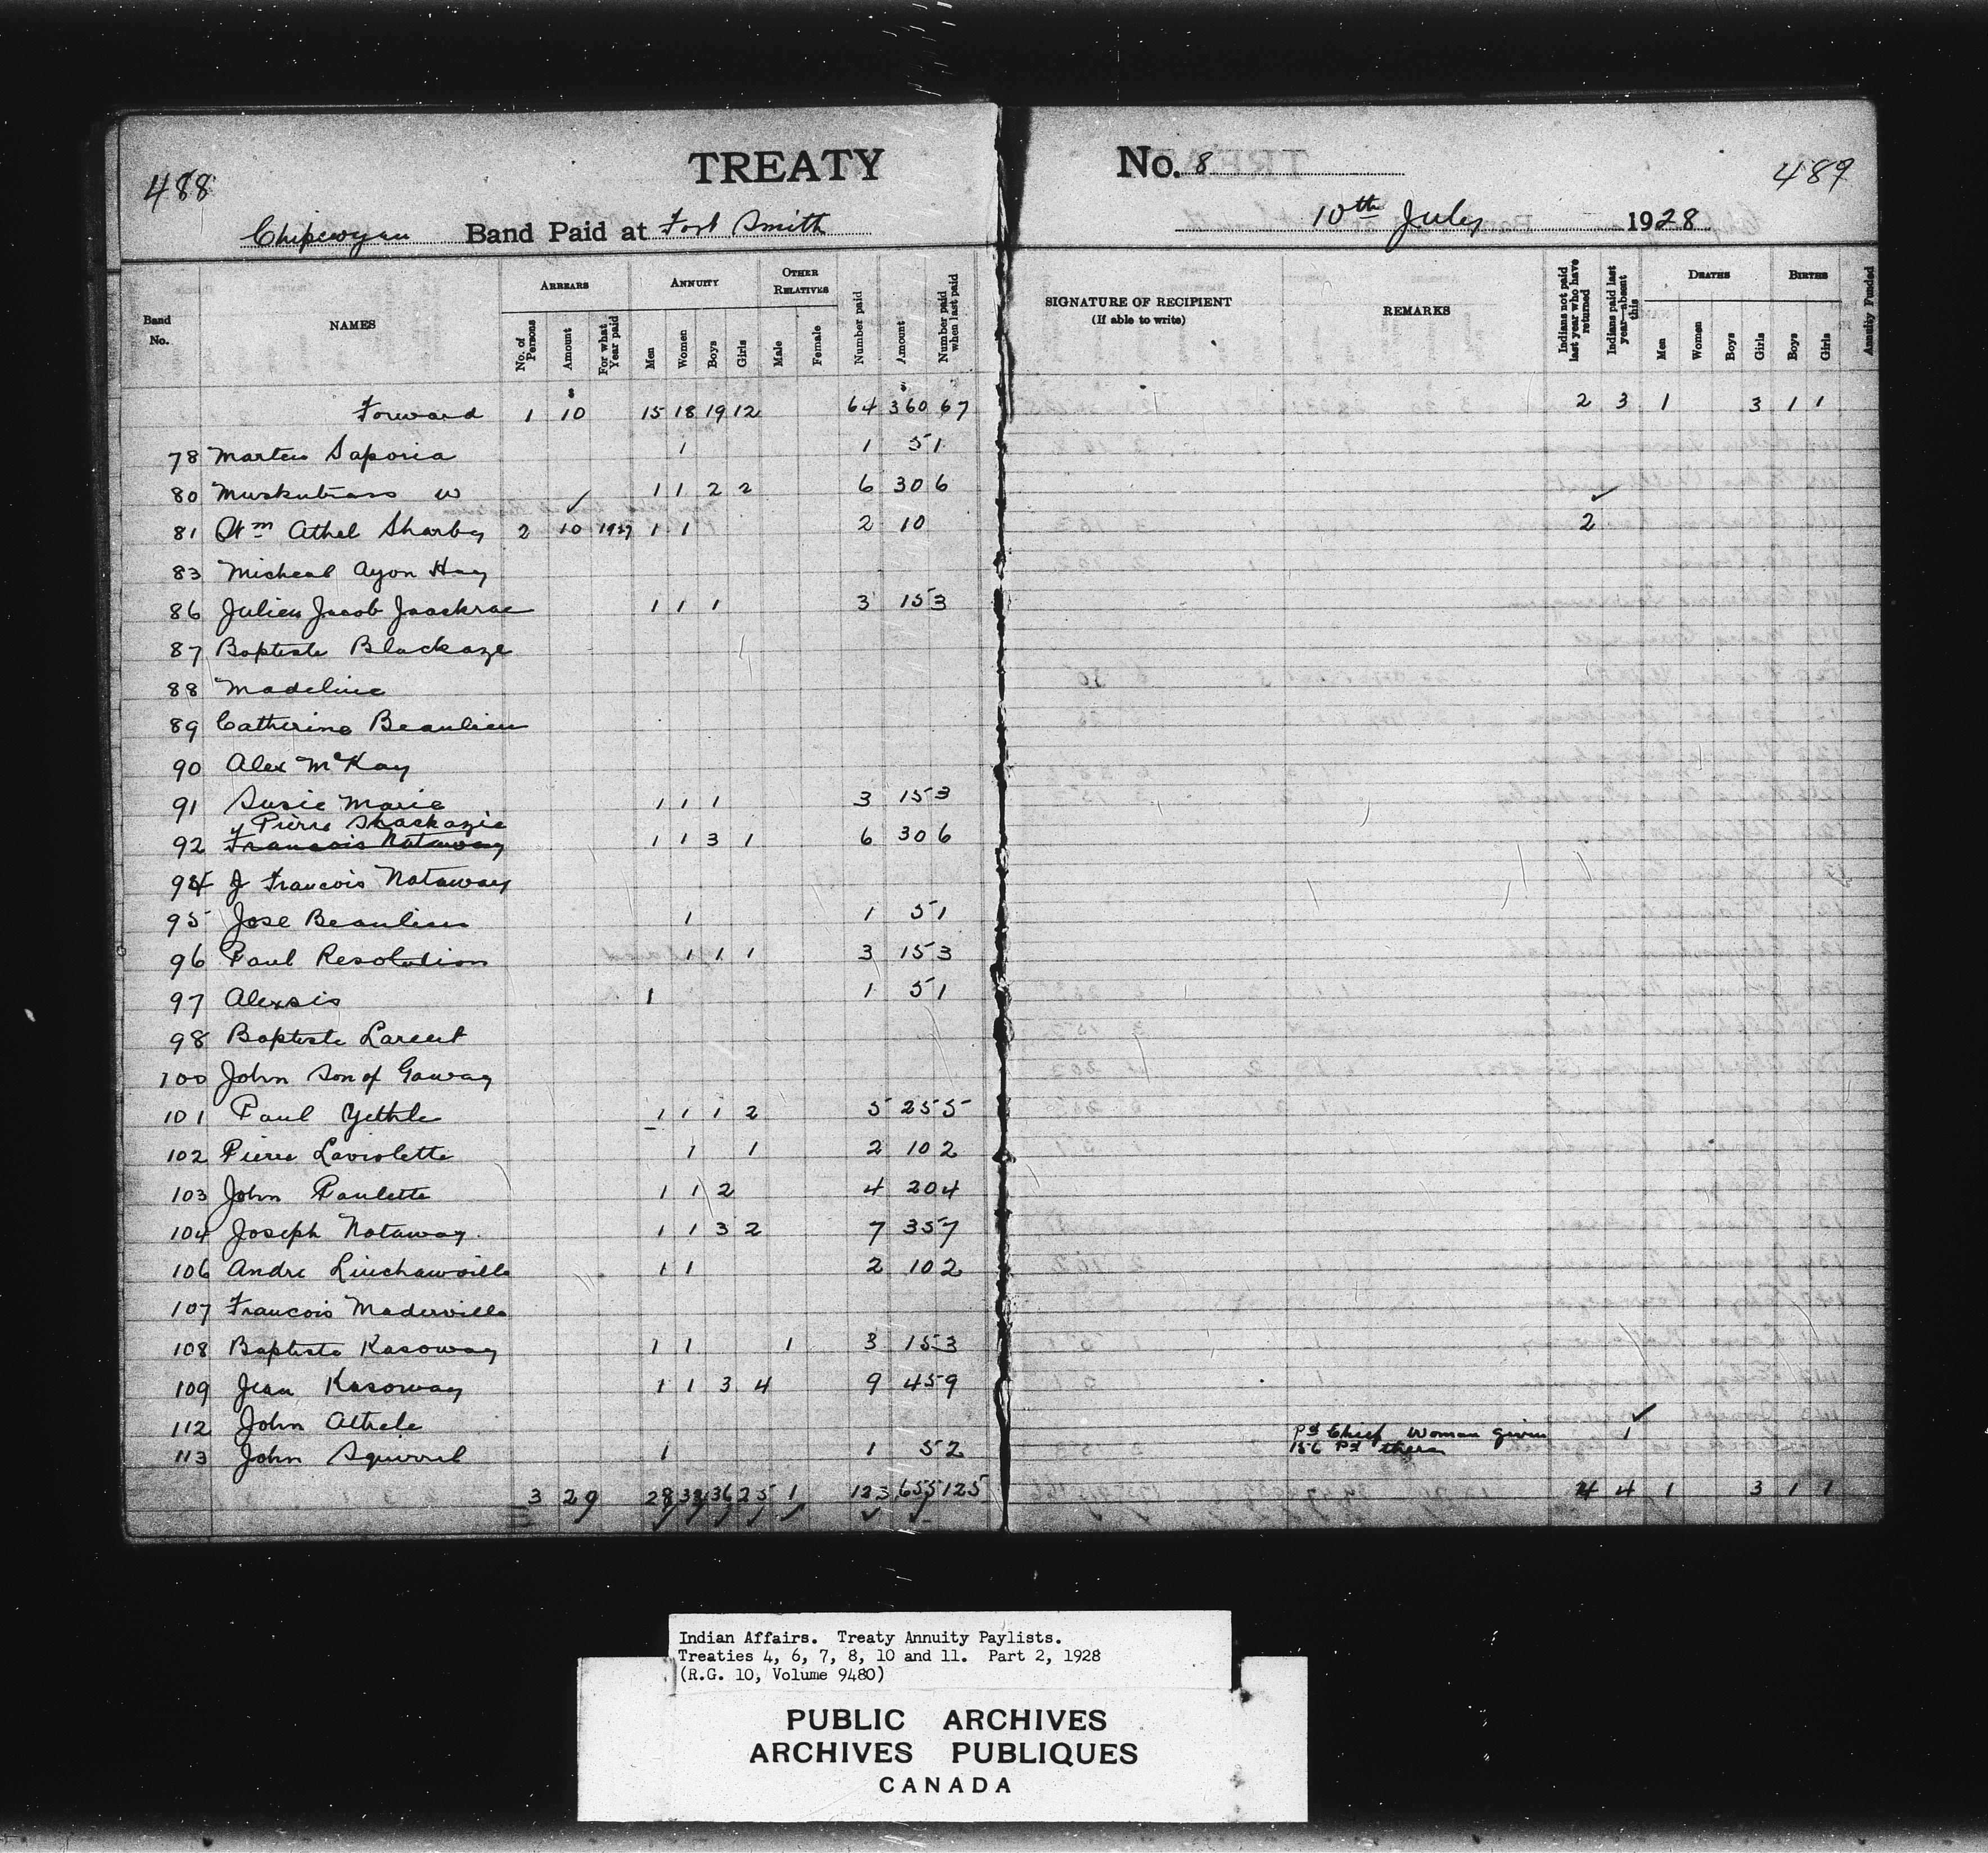 488
TREATY
No. 8
489
Chipewyan Band Paid at Fort Smith
10th July 1928
Band No.
NAMES
ARREARS
No. of Persons
Amount
For what Year paid
ANNUITY
Men
Women
Boys
Girls
OTHER RELATIVES
Male
Female
Number paid
Amount
Number paid when last paid
SIGNATURE OF RECIPIENT
(If able to write)
REMARKS
Indians not paid last year who have returned
Indians paid last year—absent this
DEATHS
Men
Women
Boys
Girls
BIRTHS
Boys
Girls
Annuity Funded
$ $
Forward 1 10 15 18 19 12 64 360 67 2 3 1 3 1 1
78 Marten Saporia 1 1 5 1
80 Muskutrass W 1 1 2 2 6 30 6
81 Wm Athel Sharby 2 10 1927 1 1 2 10 2
83 Micheal Ayon Hay
86 Julien Jacob Jaackrae 1 1 1 3 15 3
87 Baptiste Blackaze
88 Madeline
89 Catherine Beaulieu
90 Alex McKay
91 Susie Marie 1 1 1 3 15 3
Pierre Shackazie
92 Francois Nataway 1 1 3 1 6 30 6
94 J Francois Nataway
95 Jose Beaulieu 1 1 5 1
96 Paul Resolution 1 1 1 3 15 3
97 Alexsis 1 1 5 1
98 Baptiste Larent
100 John Son of Gaway
101 Paul Yethle 1 1 1 2 5 25 5
102 Pierre Laviolette 1 1 2 10 2
103 John Paulette 1 1 2 4 20 4
104 Joseph Nataway 1 1 3 2 7 35 7
106 Andre Linchawville 1 1 2 10 2
107 Francois Maderville
108 Baptiste Kasoway 1 1 1 3 15 3
109 Jean Kasoway 1 1 3 4 9 45 9
112 John Athele 1
113 John Squirrel 1 1 5 2 Pd Chief Woman given 156 Pd there
3 20 28 33 36 25 1 123 655 125 4 4 1 3 1 1
Indian Affairs. Treaty Annuity Paylists.
Treaties 4, 6, 7, 8, 10 and 11. Part 2, 1928
(R.G. 10, Volume 9480)
PUBLIC ARCHIVES
ARCHIVES PUBLIQUES
CANADA